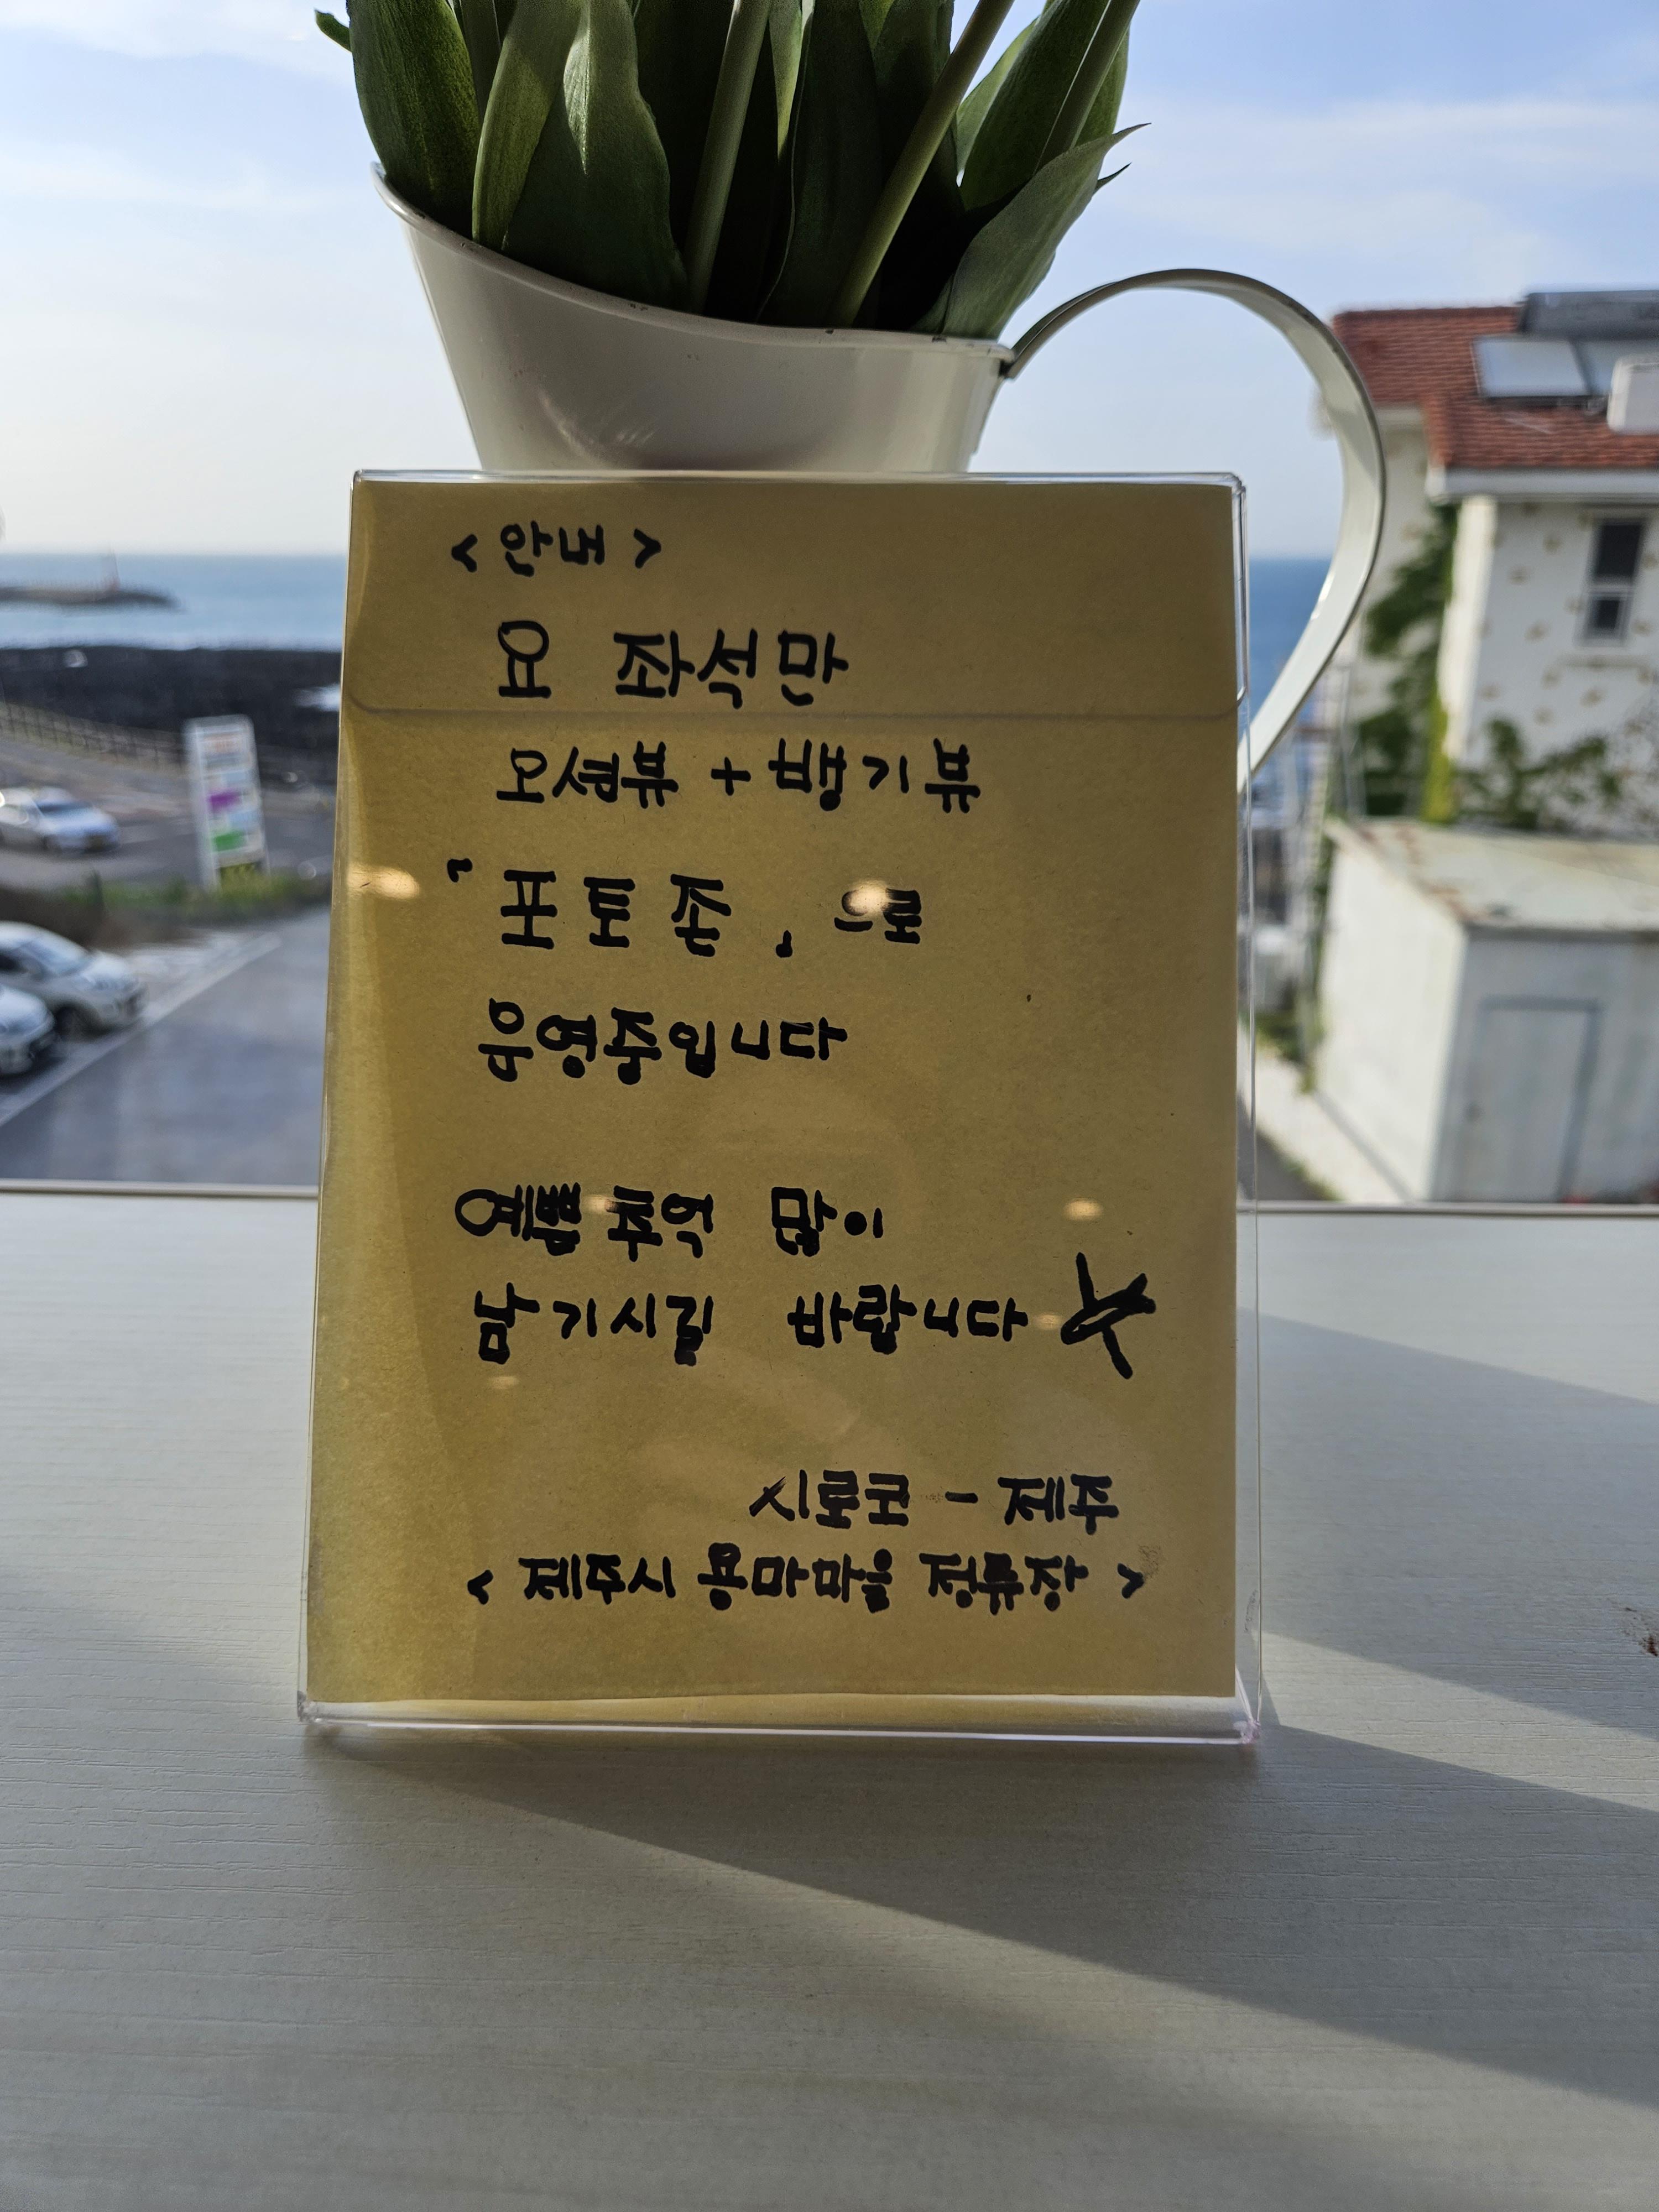 < 안내 >
요 좌석만
오션뷰 + 뱅기뷰
「포토존」으로
운영중입니다
예쁨추억 많이
남기시길 바랍니다
시로코 - 제주
< 제주시 용마마을 정류장 >